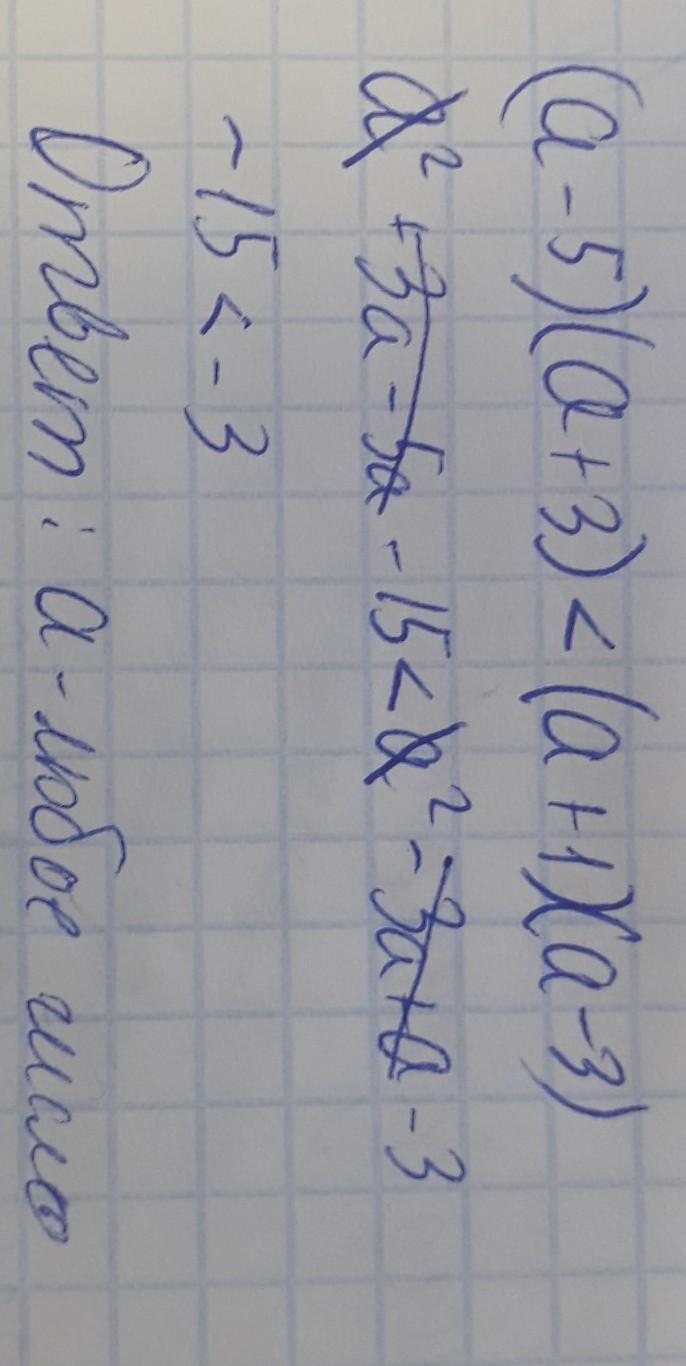 (a-5)(a+3)<(a+1)(a-3)
a²+3a-5a-15<a²-3a+a-3
-15<-3
Ответ: a-любое число